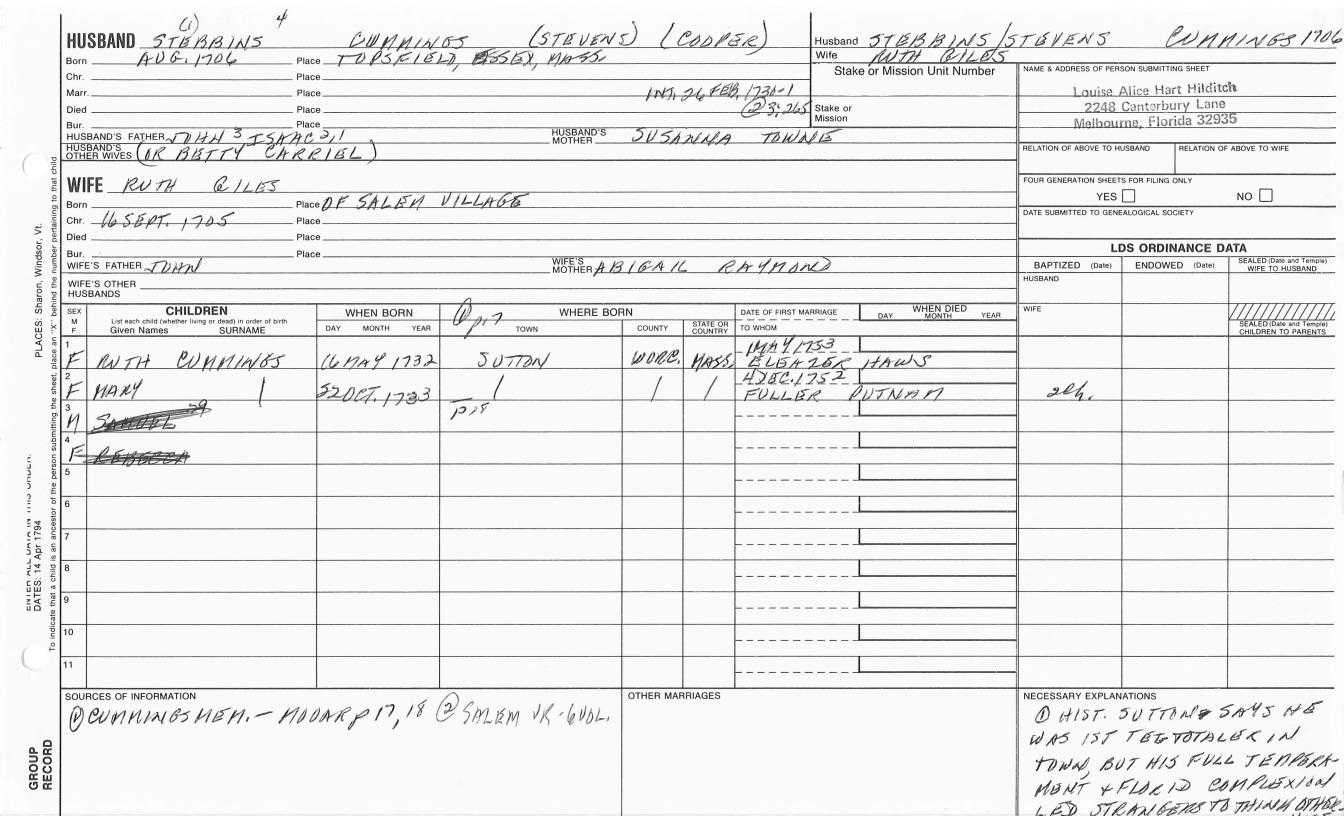 (1) 4
HUSBAND STEBBINS CUMMINGS (STEVENS) (COOPER)
Born AUG. 1706 Place TOPSFIELD, ESSEX, MASS.
Chr. Place
Marr. Place INT. 26 FEB. 1730-1
Died Place ② 3:265
Bur. Place
HUSBAND'S FATHER JOHN 3 ISAAC 2,1 HUSBAND'S MOTHER SUSANNA TOWNE
HUSBAND'S OTHER WIVES (OR BETTY CARRIEL)
Husband STEBBINS/STEVENS CUMMINGS 1706
Wife RUTH GILES
Stake or Mission Unit Number
Stake or Mission
NAME & ADDRESS OF PERSON SUBMITTING SHEET
Louise Alice Hart Hilditch
2248 Canterbury Lane
Melbourne, Florida 32935
RELATION OF ABOVE TO HUSBAND RELATION OF ABOVE TO WIFE
FOUR GENERATION SHEETS FOR FILING ONLY
YES NO
DATE SUBMITTED TO GENEALOGICAL SOCIETY
WIFE RUTH GILES
Born Place OF SALEM VILLAGE
Chr. 16 SEPT. 1705 Place
Died Place
Bur. Place
WIFE'S FATHER JOHN WIFE'S MOTHER ABIGAIL RAYMOND
WIFE'S OTHER HUSBANDS
LDS ORDINANCE DATA
BAPTIZED (Date) ENDOWED (Date) SEALED (Date and Temple) WIFE TO HUSBAND
HUSBAND
WIFE
SEALED (Date and Temple) CHILDREN TO PARENTS
SEX M F
CHILDREN
List each child (whether living or dead) in order of birth
Given Names SURNAME
WHEN BORN
DAY MONTH YEAR
① p17 WHERE BORN
TOWN COUNTY STATE OR COUNTRY
DATE OF FIRST MARRIAGE
TO WHOM
WHEN DIED
DAY MONTH YEAR
1 MAY 1753
F RUTH CUMMINGS 16 MAY 1732 SUTTON WORC. MASS. ELEAZER HAWS
2 4 DEC. 1752
F MARY OCT. 1733 FULLER PUTNAM 2ch.
3 p18
M SAMUEL
4
F REBECCA
5
6
7
8
9
10
11
SOURCES OF INFORMATION
① CUMMINGS MEM. - MOOAR p 17, 18 ② SALEM VR - 6 VOL.
OTHER MARRIAGES
NECESSARY EXPLANATIONS
① HIST. SUTTON SAYS HE
WAS 1ST TEETOTALER IN
TOWN, BUT HIS FULL TEMPERA-
MENT & FLORID COMPLEXION
LED STRANGERS TO THINK OTHER-
PLACES: Sharon, Windsor, Vt.
ENTER ALL DATA IN THIS ORDER:
DATES: 14 Apr 1794
To indicate that a child is an ancestor of the person submitting the sheet, place an "X" behind the number pertaining to that child.
GROUP RECORD